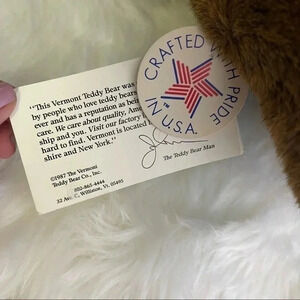 "This Vermont Teddy Bear was
by people who love teddy bears
ever and has a reputation as bei
care. We care about quality, Am
ship and you. Visit our factory
hard to find. Vermont is located
shire and New York."
The Teddy Bear Man
©1987 The Vermont
Teddy Bear Co., Inc.
802-865-4444
32 Ave. C, Williston, Vt. 05495
CRAFTED WITH PRIDE
IN U.S.A.